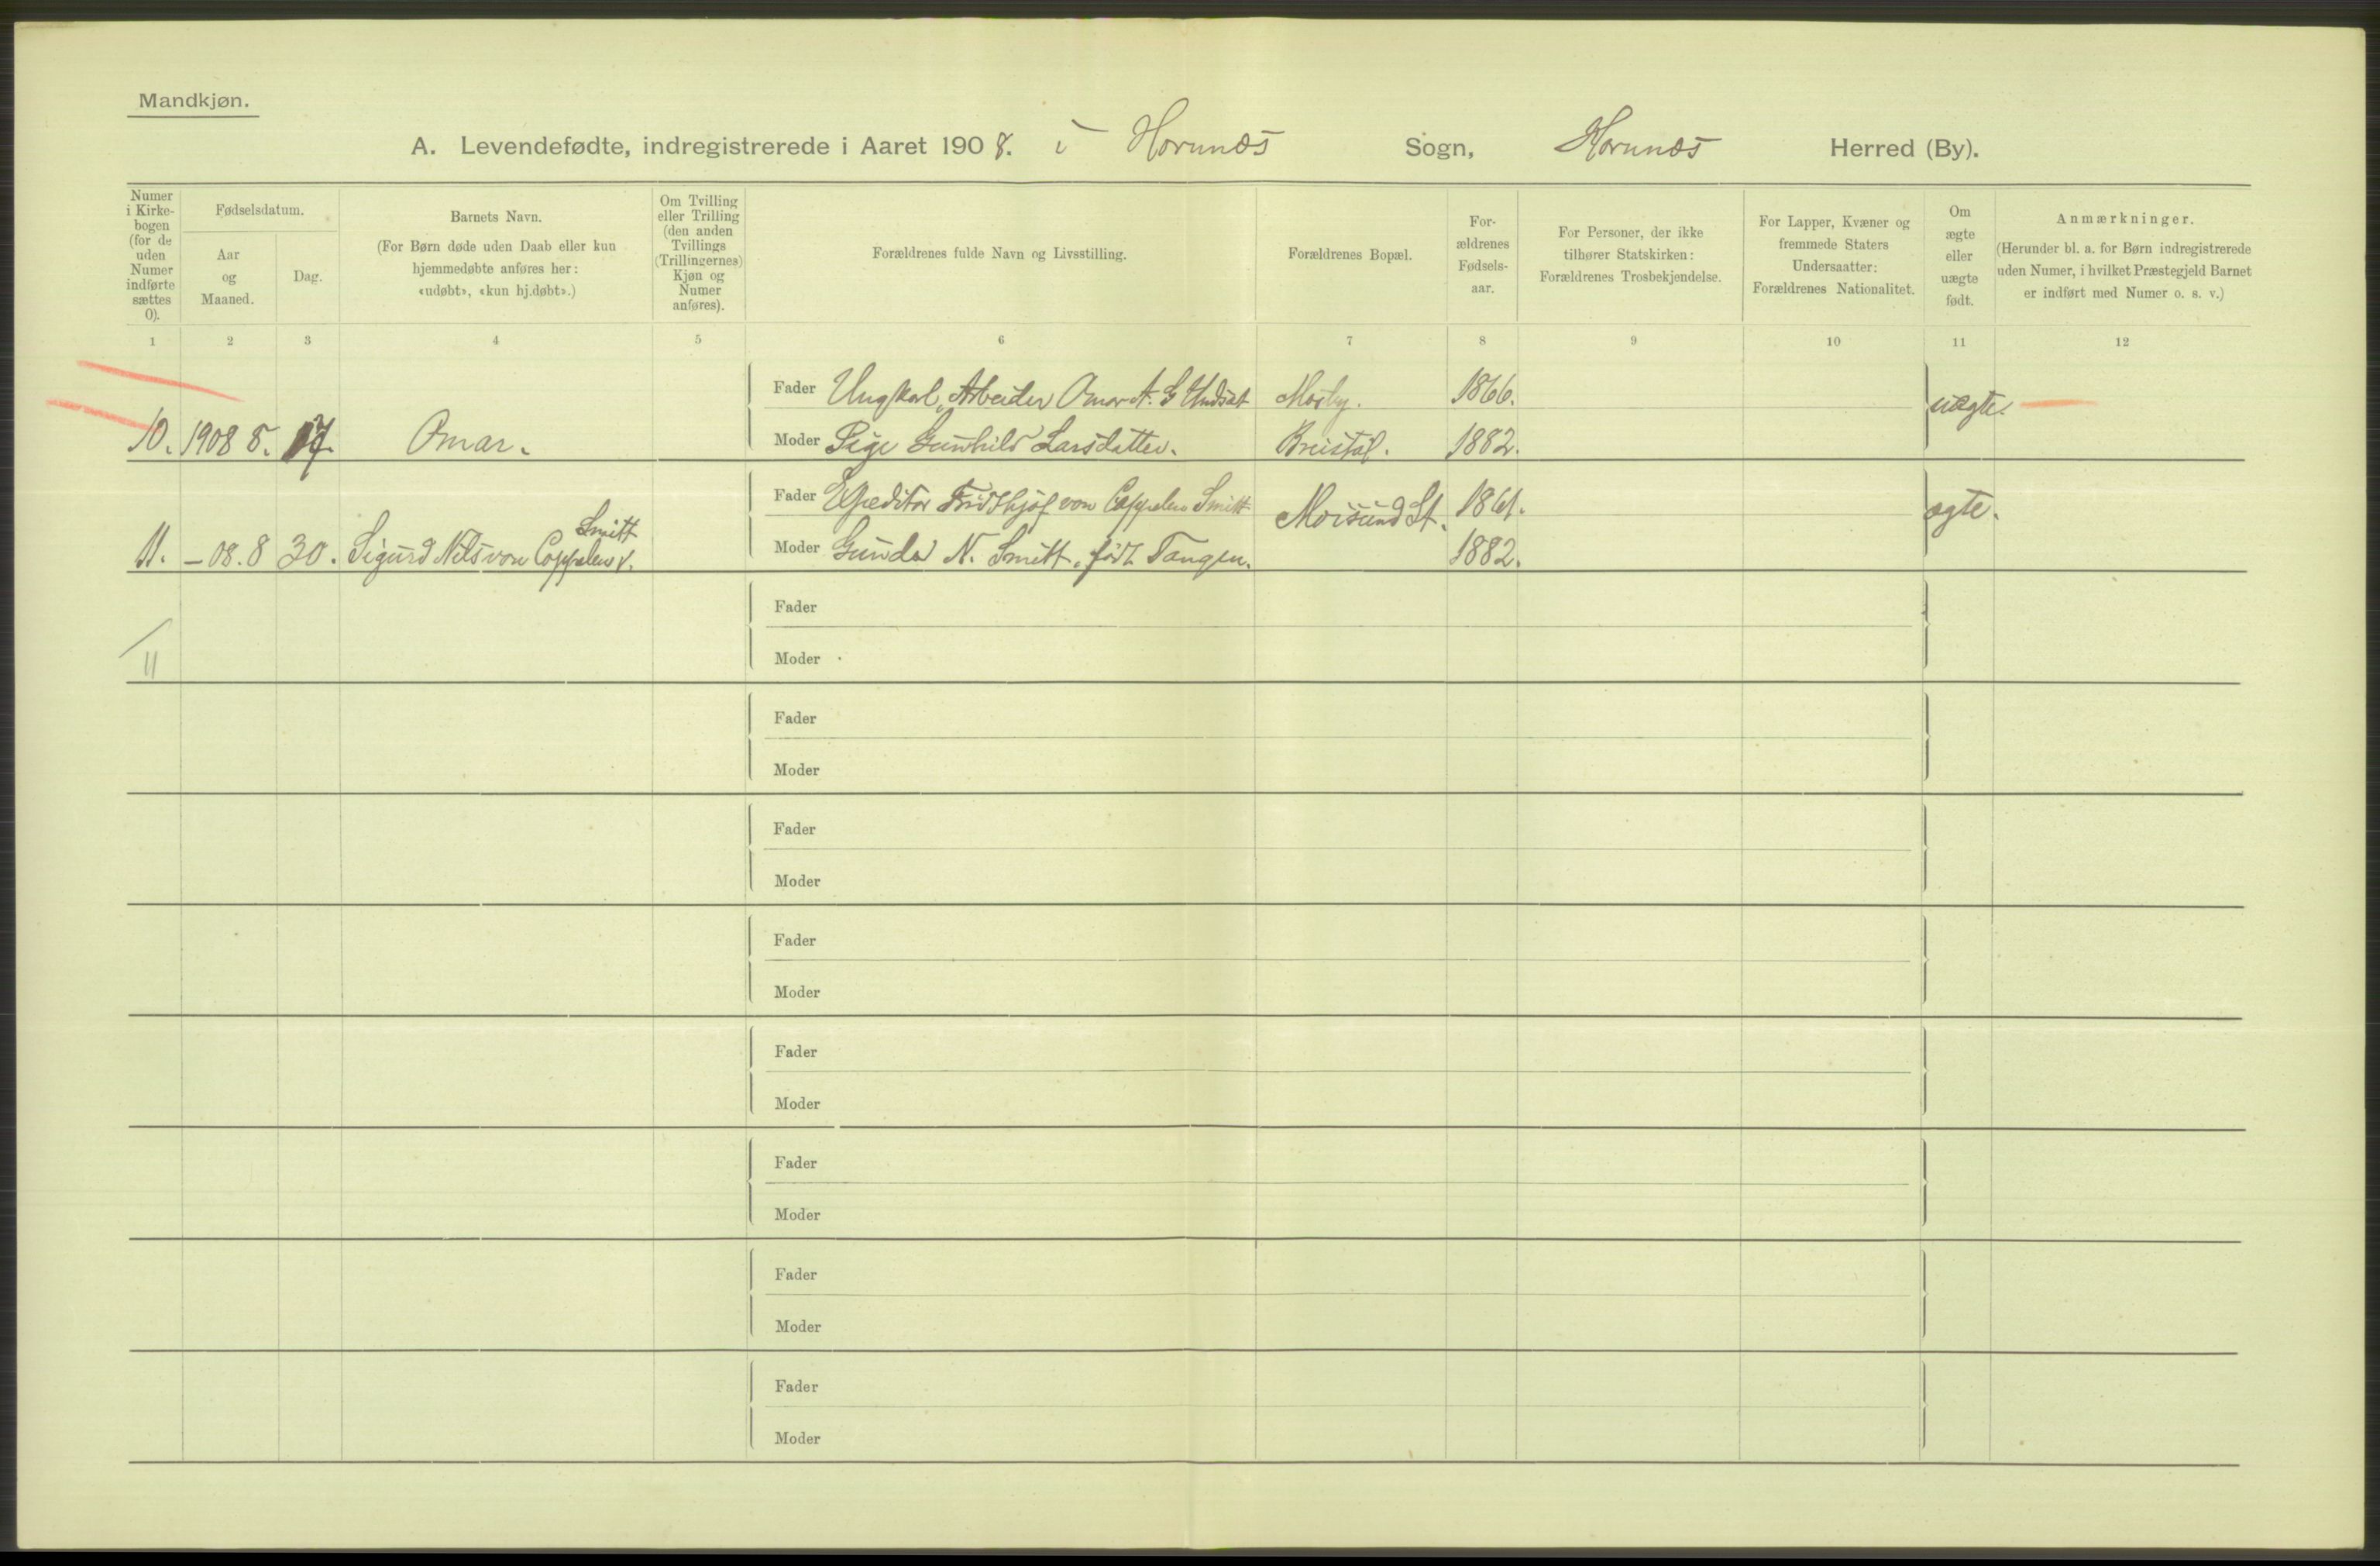 Mandkjøn.
A. Levendefødte, indregistrerede i Aaret 1908. i Hornnes Sogn, Hornnes Herred (By).
Numer i Kirke-bogen (for de uden Numer indførte sættes 0).
Fødselsdatum.
Aar og Maaned.
Dag.
Barnets Navn.
(For Børn døde uden Daab eller kun hjemmedøbte anføres her: «udøbt», «kun hj.døbt».)
Om Tvilling eller Trilling (den anden Tvillings (Trillingernes) Kjøn og Numer anføres).
Forældrenes fulde Navn og Livsstilling.
Forældrenes Bopæl.
For-ældrenes Fødsels-aar.
For Personer, der ikke tilhører Statskirken: Forældrenes Trosbekjendelse.
For Lapper, Kvæner og fremmede Staters Undersaatter: Forældrenes Nationalitet.
Om ægte eller uægte født.
Anmærkninger.
(Herunder bl. a. for Børn indregistrerede uden Numer, i hvilket Præstegjeld Barnet er indført med Numer o. s. v.)
1 2 3 4 5 6 7 8 9 10 11 12
Fader Ungkarl, Arbeider Omar A. G Mosby. 1866. uægte.
10. 1908 8. 17. Omar. Moder Pige Gunhild Larsdatter. Breistøl. 1882.
Fader Expeditør Fridthjof von Cappelen Smitt Moisund St. 1861. ægte.
Smitt
11. – 08. 8 30. Sigurd Nils von Cappelen Moder Gunda N. Smitt, født Tangen. 1882.
Fader
11
Moder
Fader
Moder
Fader
Moder
Fader
Moder
Fader
Moder
Fader
Moder
Fader
Moder
Fader
Moder